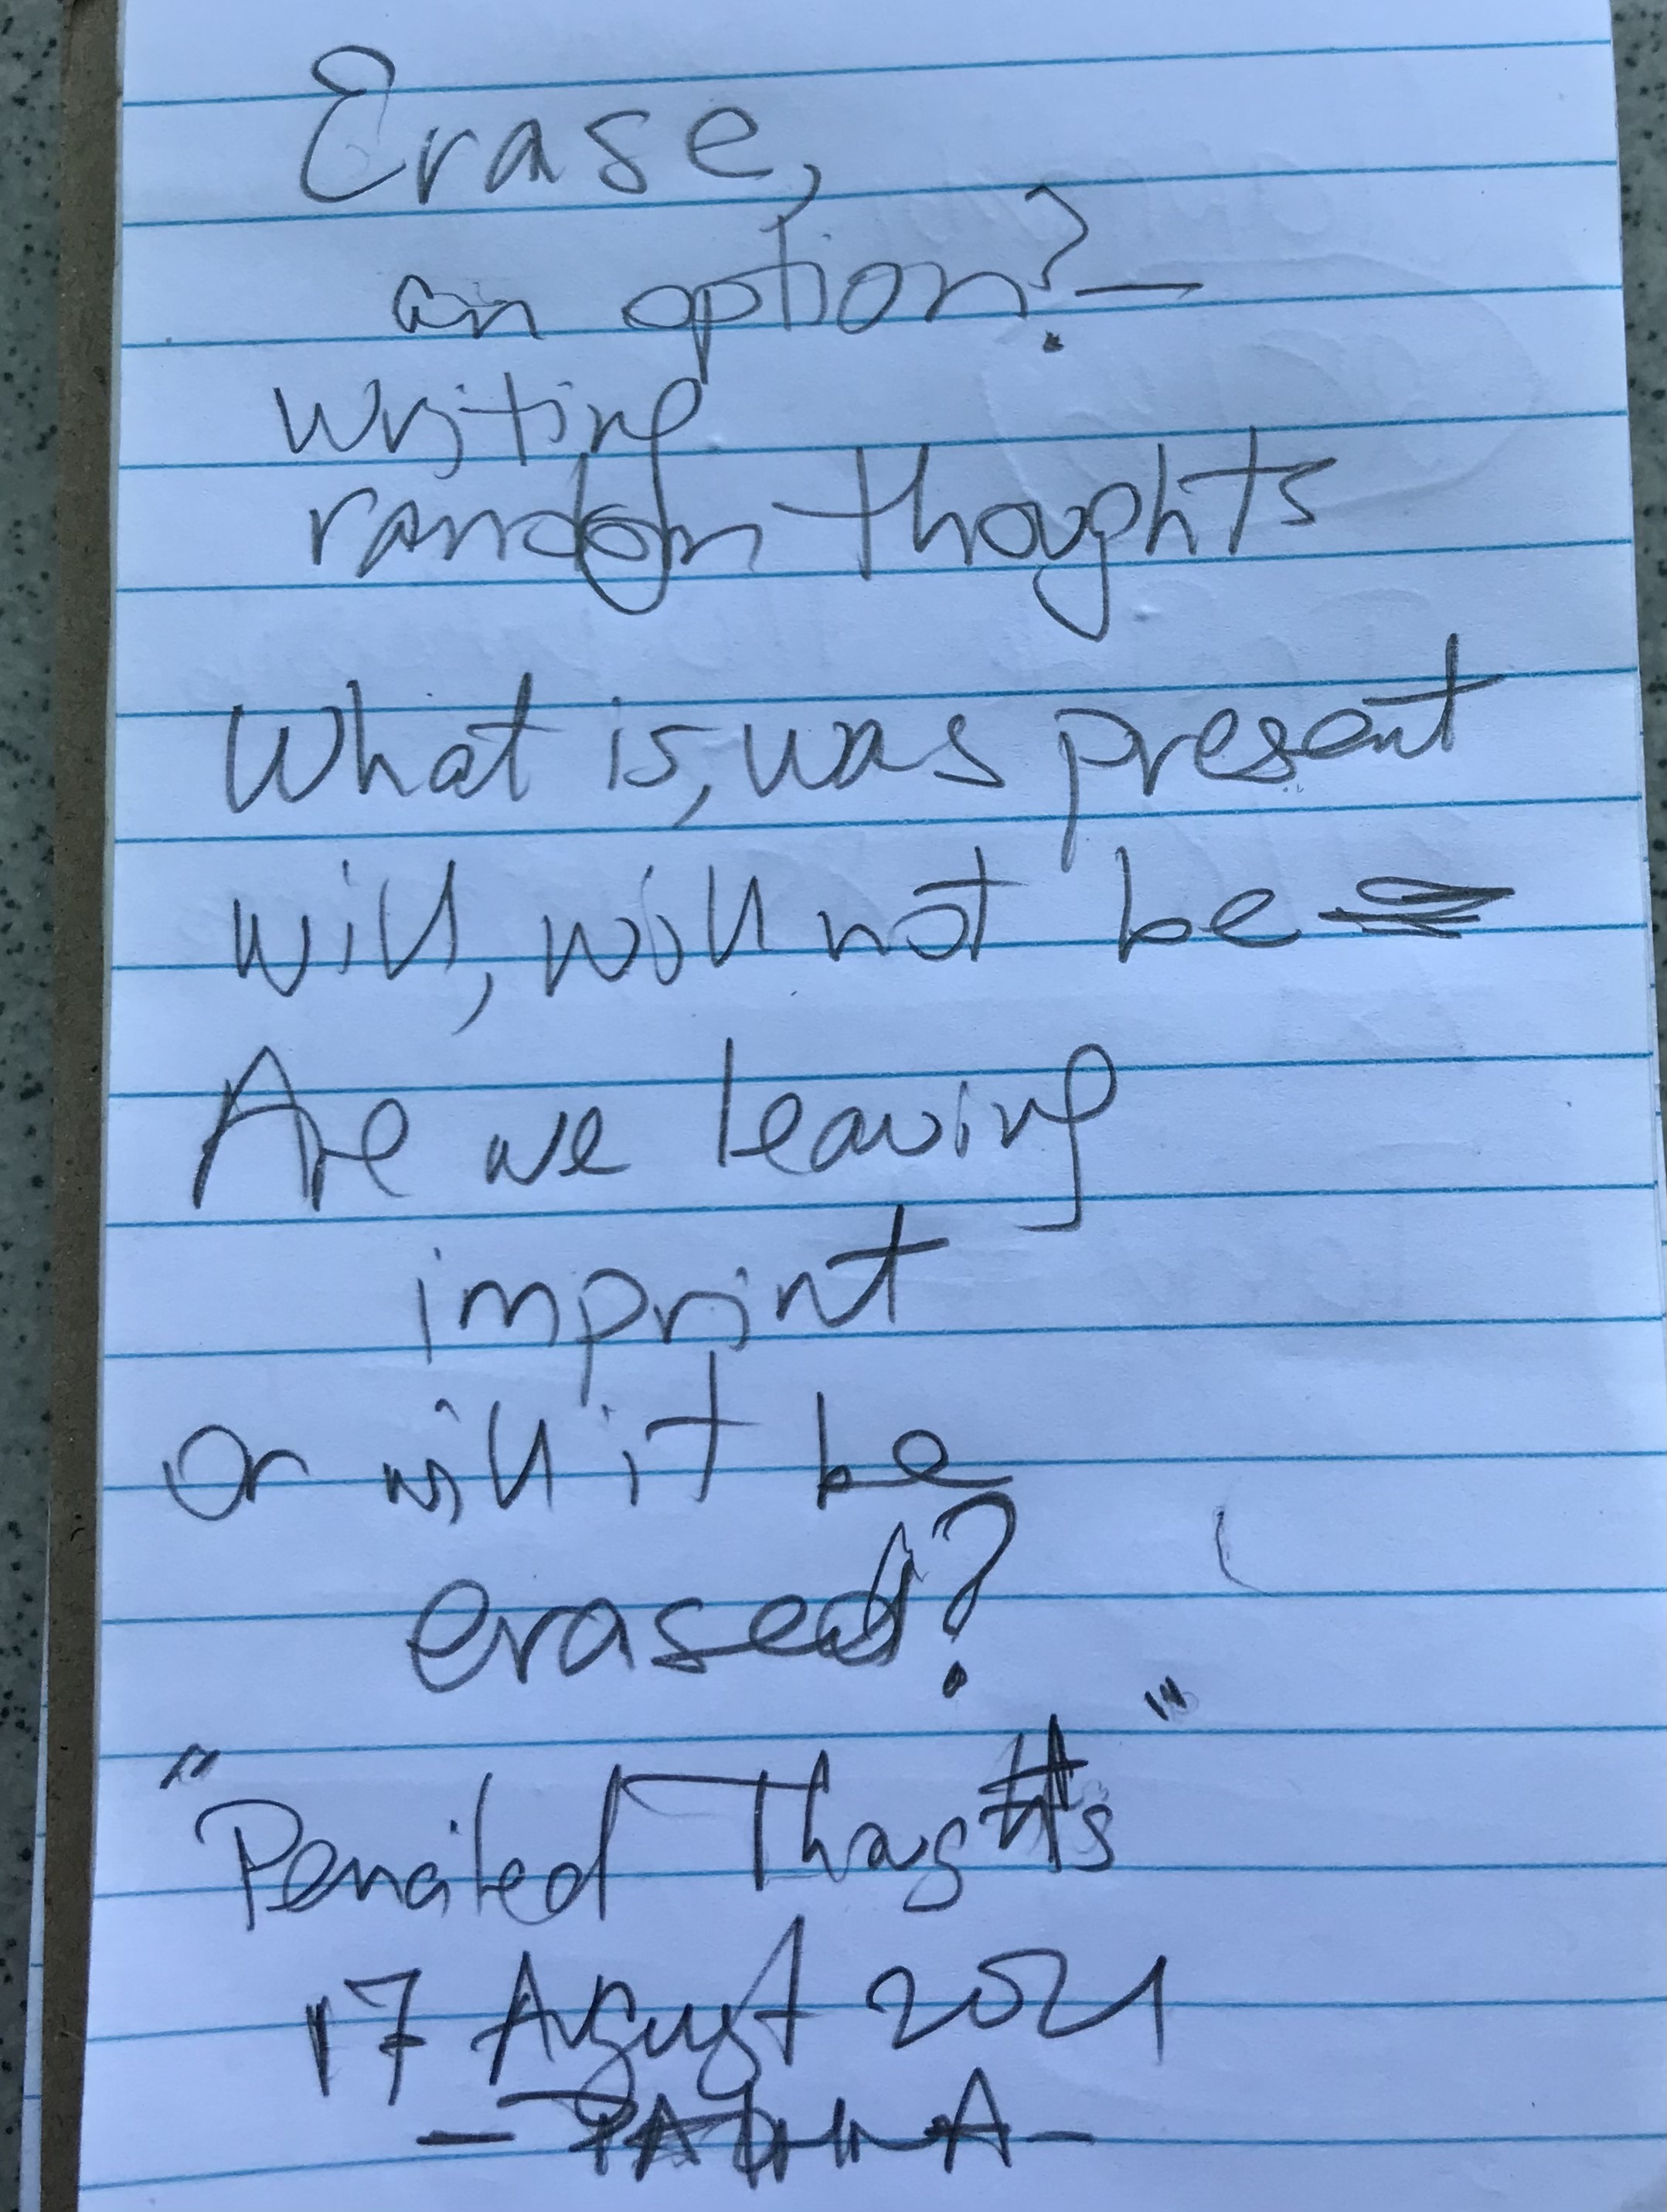 Erase,
an option? —
writing
random thoughts
What is, was present
will, will not be
Are we leaving
imprint
or will it be
erased?
"Penciled Thoughts"
17 August 2021